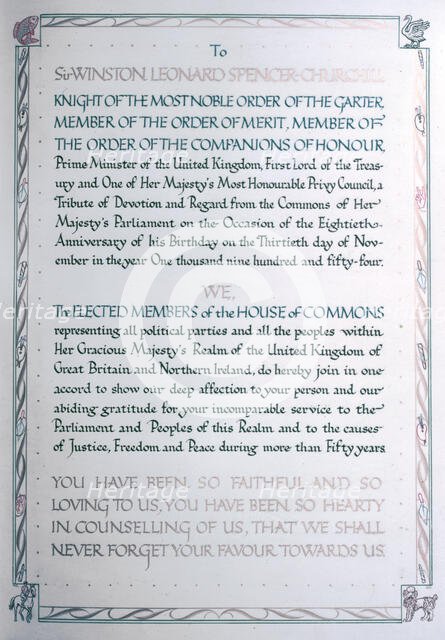 To
Sir WINSTON LEONARD SPENCER-CHURCHILL
KNIGHT OF THE MOST NOBLE ORDER OF THE GARTER,
MEMBER OF THE ORDER OF MERIT, MEMBER OF
THE ORDER OF THE COMPANIONS OF HONOUR,
Prime Minister of the United Kingdom, First Lord of the Treas-
ury and One of Her Majesty's Most Honourable Privy Council, a
Tribute of Devotion and Regard from the Commons of Her
Majesty's Parliament on the Occasion of the Eightieth
Anniversary of his Birthday on the Thirtieth day of Nov-
ember in the year One thousand nine hundred and fifty-four.
WE,
The ELECTED MEMBERS of the HOUSE of COMMONS
representing all political parties and all the peoples within
Her Gracious Majesty's Realm of the United Kingdom of
Great Britain and Northern Ireland, do hereby join in one
accord to show our deep affection to your person and our
abiding gratitude for your incomparable service to the
Parliament and Peoples of this Realm and to the causes
of Justice, Freedom and Peace during more than Fifty years.
YOU HAVE BEEN SO FAITHFUL AND SO
LOVING TO US, YOU HAVE BEEN SO HEARTY
IN COUNSELLING OF US, THAT WE SHALL
NEVER FORGET YOUR FAVOUR TOWARDS US.
Heritage
Heritage
Heritage
Heritage
Heritage
Heritage